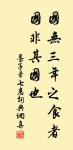 國無三年之食者
國非其國也
墨子章七患詞典網喜